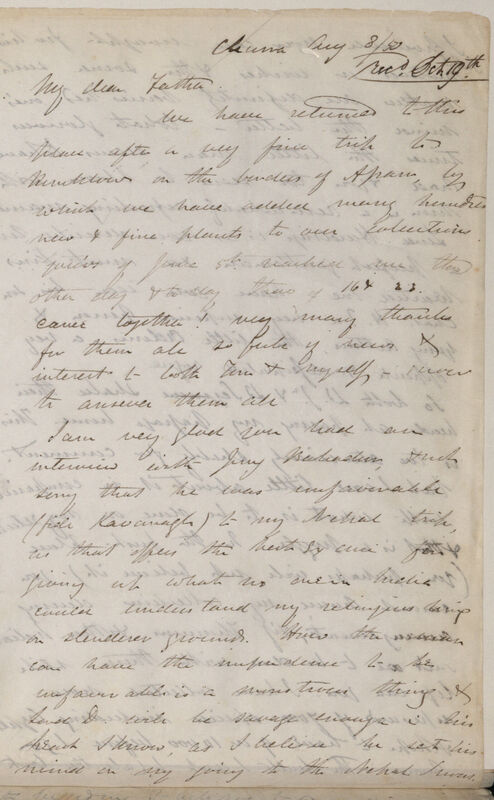 Churra Aug 8/50
Recd. Oct 19th
My dear Father
We have returned to this
place after a very fine trip to
on the borders of Assam, by
which we have added many hundred
new & fine plants to our Collections.
Yours of June 5th reached me the
other day & to day those of 16 & 23
came together! very many thanks
for them all so full of news &
interest to both Tom & myself – now
to answer them all
I am very glad you had an
interview with Jung Bahadur, & not
sorry that he was unfavorable
(fide Kavanagh) to my Nepal trip,
as that offers the best for
giving up what no one in India
could understand my relinquishing
on slender grounds. How the
can have the impudence to be
unfavorable is a monstrous thing &
Lord D. will be savage enough in his
heart I know, as I believe he set his
mind on my going to the Nepal